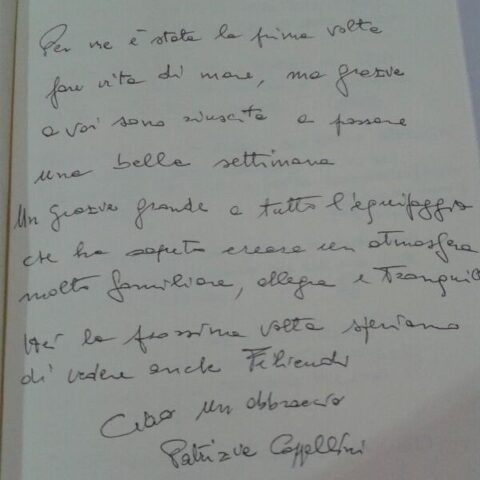 Per me è stata la prima volta
fare vita di mare, ma grazie
a voi sono riuscita a passare
una bella settimana
Un grazie grande a tutto l'equipaggio
che ha saputo creare un atmosfera
molto familiare, allegra e tranquil
la prossima volta speriamo
di vedere anche Filicudi
Ciao un abbraccio
Patrizia Cappellini